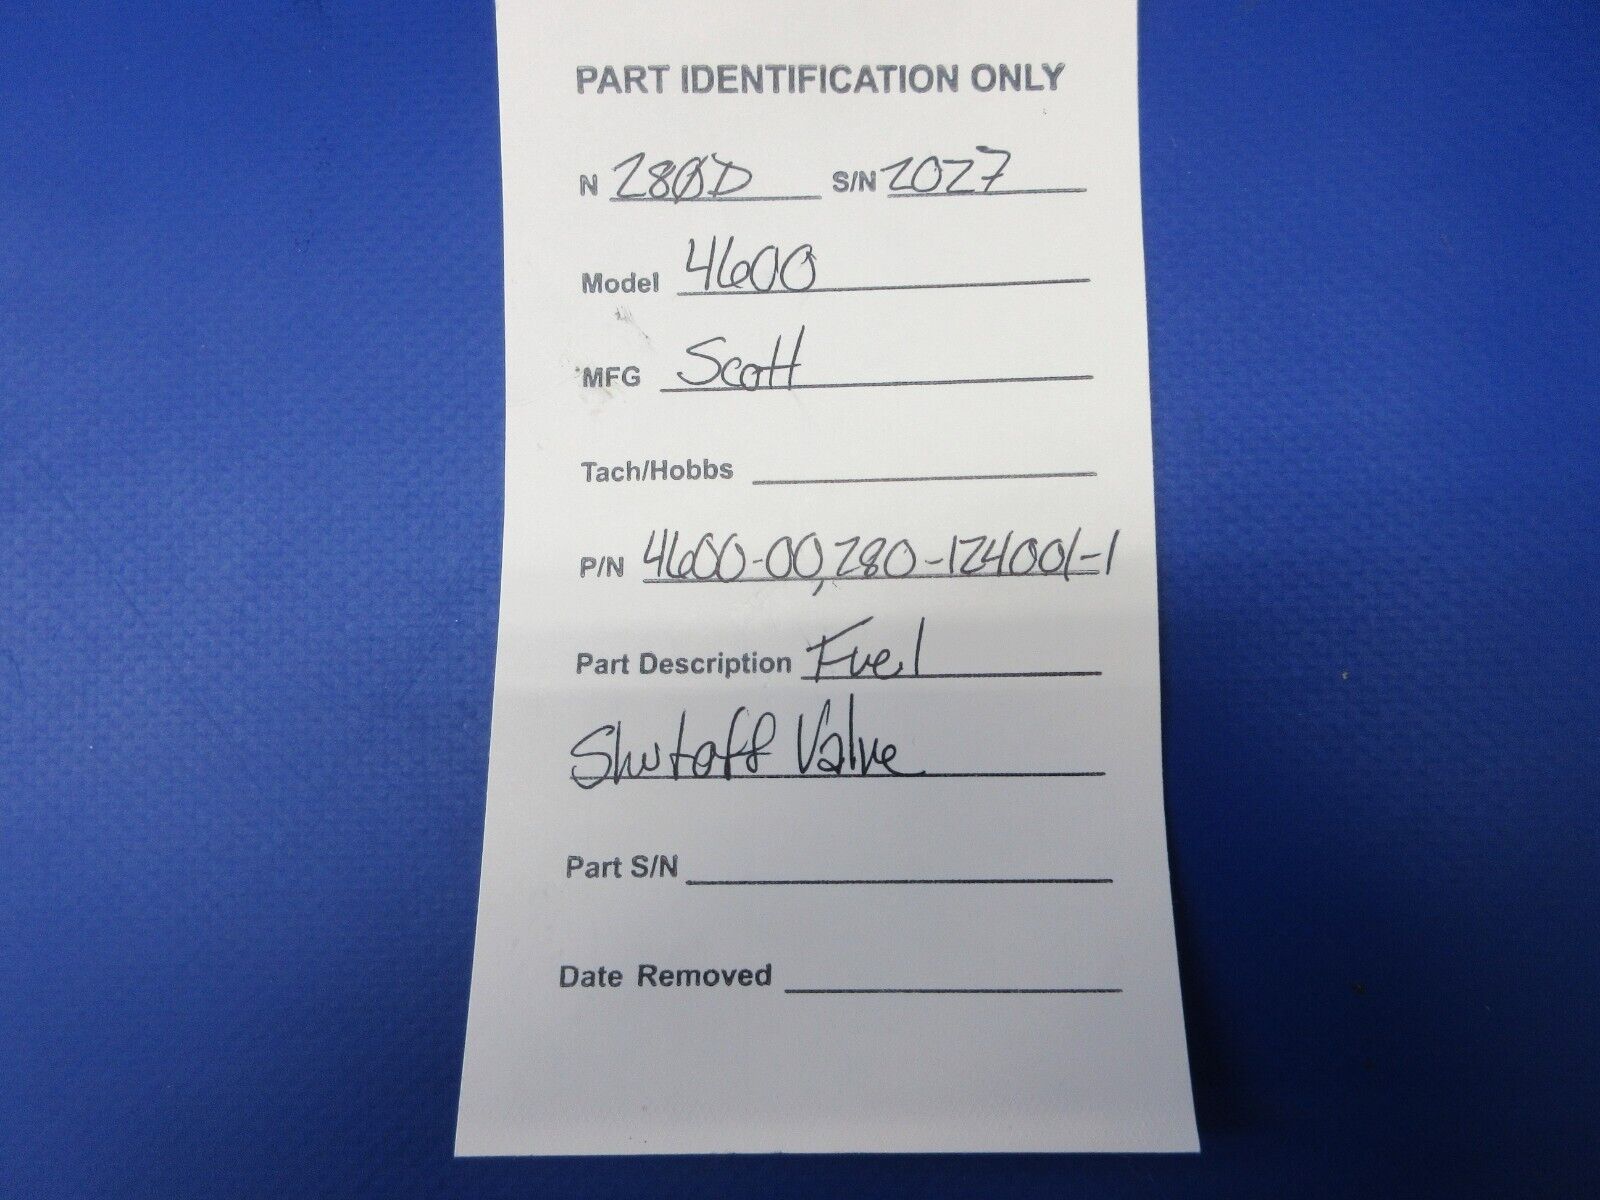 PART IDENTIFICATION ONLY
N 280D S/N 2027
Model 4600
MFG Scott
Tach/Hobbs
P/N 4600-00, 280-124001-1
Part Description Fuel
Shutoff Valve
Part S/N
Date Removed